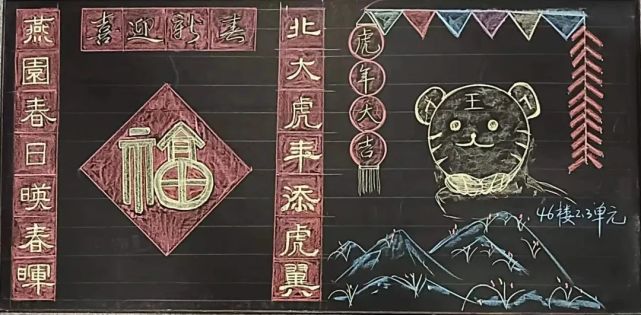 喜迎新春
北大虎年添虎翼
燕园春日暎春晖
福
虎年大吉
王
46楼2.3单元